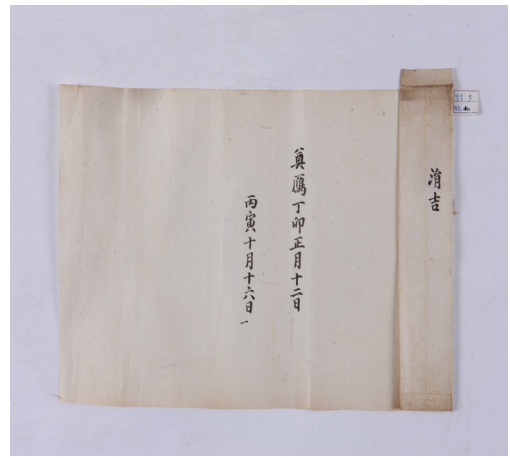 涓吉
奠鴈丁卯正月十二日
丙寅十月十六日